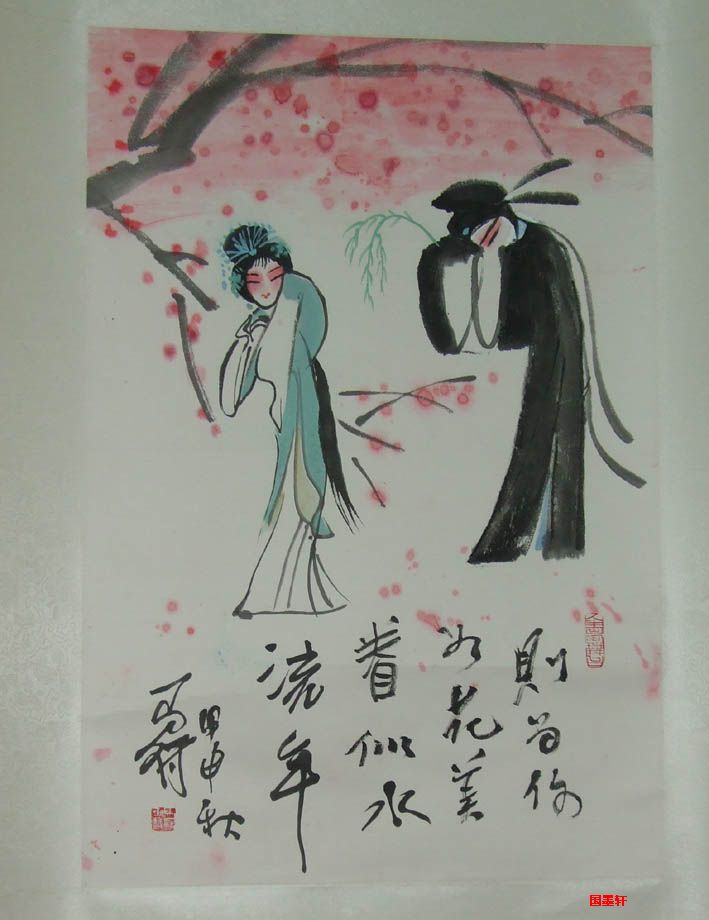 則為你
如花美
眷似水
流年
甲申秋
馬得
国墨轩